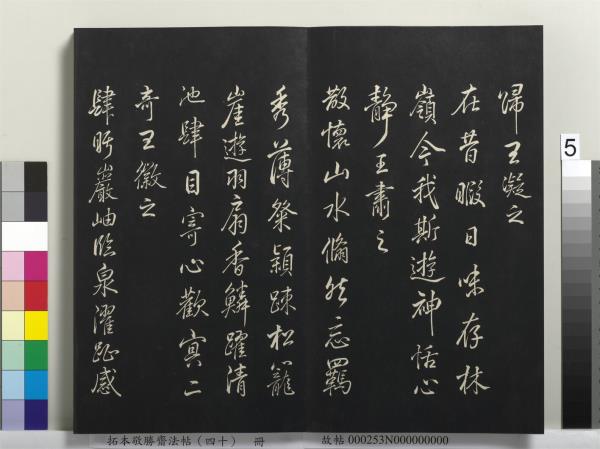 歸王凝之
在昔暇日味存林
嶺今我斯遊神恬心
靜王肅之
散懷山水翛然忘羈
秀薄粲穎疎松籠
崖遊羽扇香鱗躍清
池肆目寄心歡冥二
奇王徽之
肆眄巖岫臨泉濯趾感
5
拓本敬勝齋法帖(四十) 冊
故帖 000253N000000000